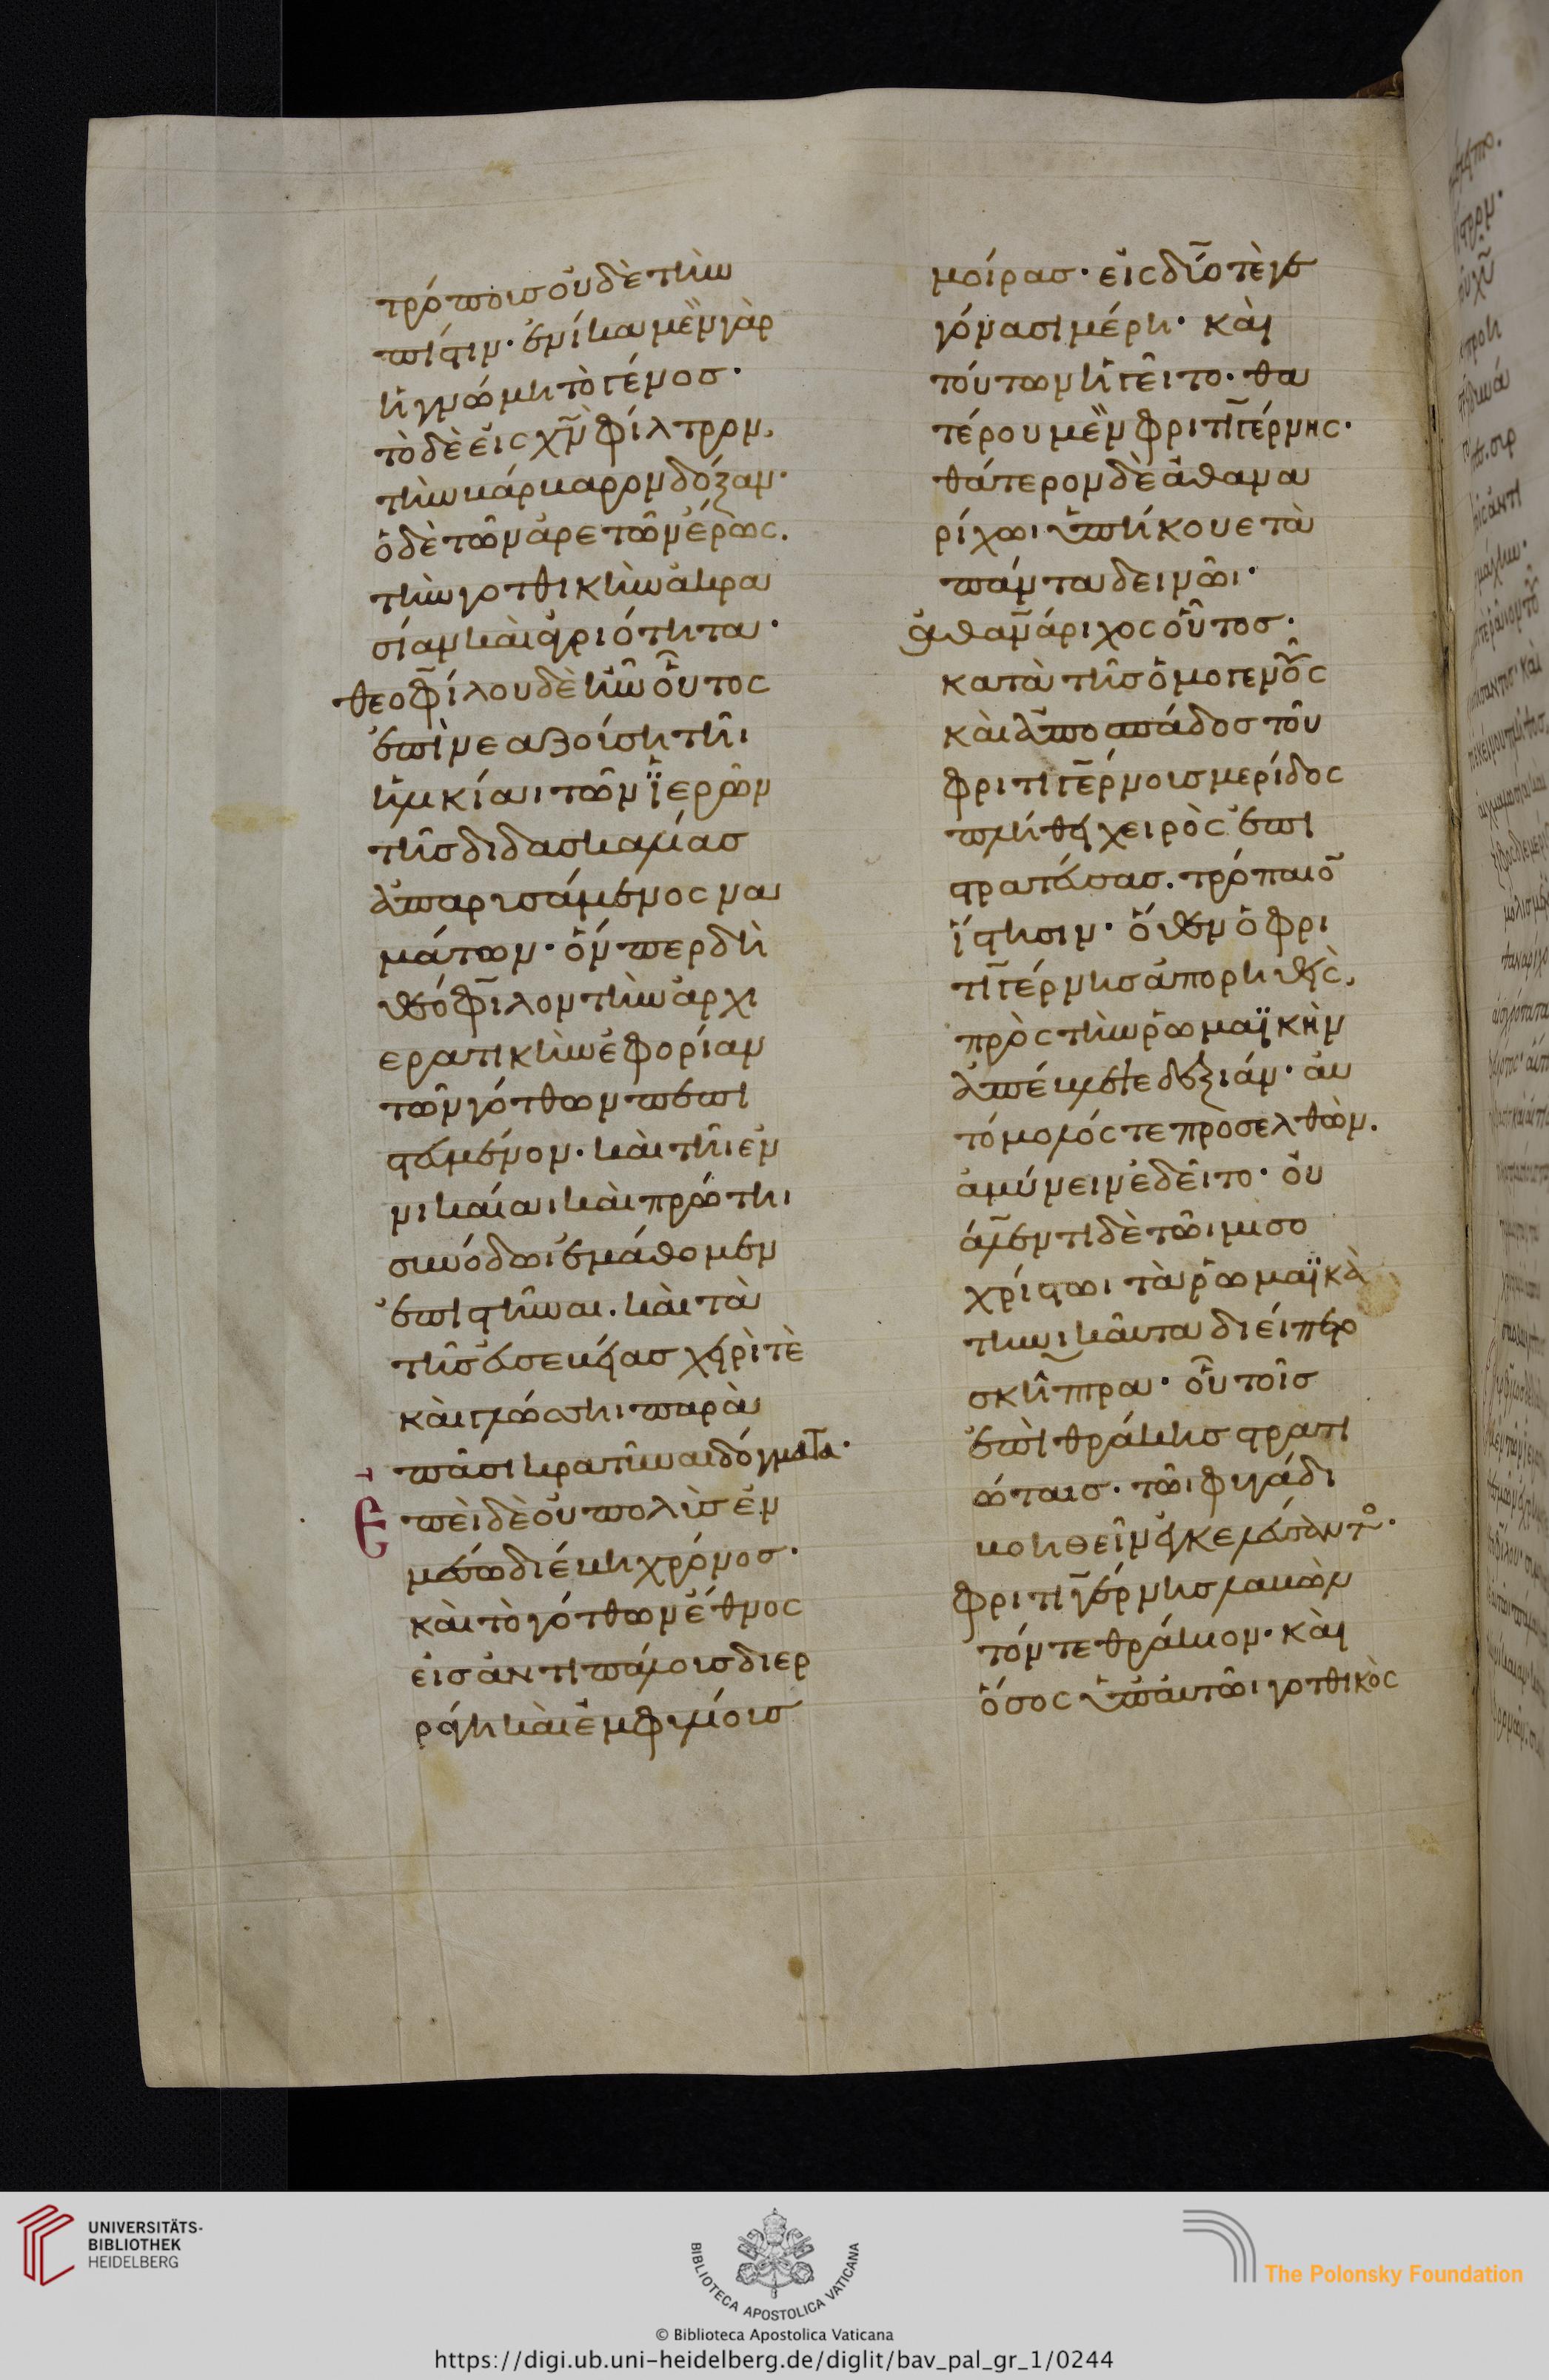 τρόποισ οὐδὲ τὴν
πίστιν· ἐνίκα μὲν γὰρ
ἡ γνώμη τὸ γένοσ·
τὸ δὲ εἰς χν̄ φίλτρον,
τὴν βάρβαρον δόξαν·
ὁ δὲ τῶν ἀρετῶν ἔρως.
τὴν γοτθικὴν ἀκρα
σίαν καὶ ἀγριότητα·
θεοφίλου δὲ ἦν οὗτος
ἐπὶ νεαζούσηι τῆι
ἡλικίαι τῶν ϊερῶν
τῆσ διδασκαλίασ
ἀπαρυσάμενος να
μάτων· ὅνπερ δὴ
θεόφιλον τὴν ἀρχι
ερατικὴν ἐφορίαν
τῶν γότθων πεπι
στευμένον· καὶ τῆι ἐν
νικαίαι καὶ πρώτηι
συνόδωι ἐμάθομεν
ἐπιστῆναι. καὶ τὰ
τῆσ εὐσεβείασ χειρὶ τὲ
καὶ γλώσσηι παρὰ
πᾶσι κρατῦναι δόγματα·
Ἐπεὶ δὲ οὐ πολὺσ ἐν
μέσω διέβη χρόνοσ·
καὶ τὸ γότθων ἔθνος
εἰσ ἀντιπάλουσ διερ
ράγη καὶ ἐμφυλίουσ
μοίρασ· εἰς δύο τὲ γε
γόνασι μέρη· καὶ
τούτων ἡγεῖτο· θα
τέρου μὲν φριτιγέρνης·
θάτερον δὲ ἀθανα
ρίχωι ὑπήκουε τὰ
πάντα δεινῶι·
ἀθανάριχος οὗτοσ·
κατὰ τῆσ ὁμογενοῦς
καὶ ἀποσπάδοσ τοῦ
φριτιγέρνουσ μερίδος
πλήθει χειρὸς ἐπι
στρατεύσασ. τρόπαιο̄
ἵστησιν· ὅθεν ὁ φρι
τιγέρνησ ἀπορηθεὶς,
πρὸς τὴν ῥωμαϊκὴν
ἀπέκλινε δεξιάν· αὐ
τόμολός τε προσελθὼν.
ἀμύνειν ἐδεῖτο· οὐ
άλεντι δὲ τῶι μισο
χρίστωι τὰ ῥωμαϊκὰ
τηνικαῦτα διείπετο
σκῆπτρα· οὗ τοῖσ
ἐπὶ θράκησ στρατι
ώταισ. τῶι φυγάδι
βοηθεῖν ἐγκελεύσαντο·
φριτιγέρνησ λαβὼν
τόν τε θράκιον· καὶ
ὅσος ὑπ αὐτῶι γοτθικὸς
UNIVERSITÄTS-
BIBLIOTHEK
HEIDELBERG
BIBLIOTECA APOSTOLICA VATICANA
The Polonsky Foundation
© Biblioteca Apostolica Vaticana
https://digi.ub.uni-heidelberg.de/diglit/bav_pal_gr_1/0244